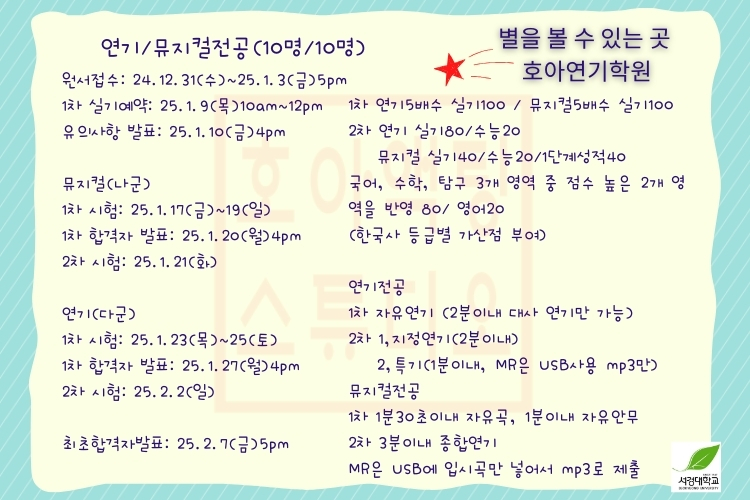 별을 볼 수 있는 곳
호아연기학원
연기/뮤지컬전공(10명/10명)
원서접수: 24.12.31(수)~25.1.3(금)5pm
1차 실기예약: 25.1.9(목)10am~12pm
유의사항 발표: 25.1.10(금)4pm
뮤지컬(나군)
1차 시험: 25.1.17(금)~19(일)
1차 합격자 발표: 25.1.20(월)4pm
2차 시험: 25.1.21(화)
연기(다군)
1차 시험: 25.1.23(목)~25(토)
1차 합격자 발표: 25.1.27(월)4pm
2차 시험: 25.2.2(일)
최초합격자발표: 25.2.7(금)5pm
1차 연기5배수 실기100 / 뮤지컬5배수 실기100
2차 연기 실기80/수능20
뮤지컬 실기40/수능20/1단계성적40
국어, 수학, 탐구 3개 영역 중 점수 높은 2개 영
역을 반영 80/ 영어20
(한국사 등급별 가산점 부여)
연기전공
1차 자유연기 (2분이내 대사 연기만 가능)
2차 1,지정연기(2분이내)
2,특기(1분이내, MR은 USB사용 mp3만)
뮤지컬전공
1차 1분30초이내 자유곡, 1분이내 자유안무
2차 3분이내 종합연기
MR은 USB에 입시곡만 넣어서 mp3로 제출
호아액팅
스튜디오
서경대학교